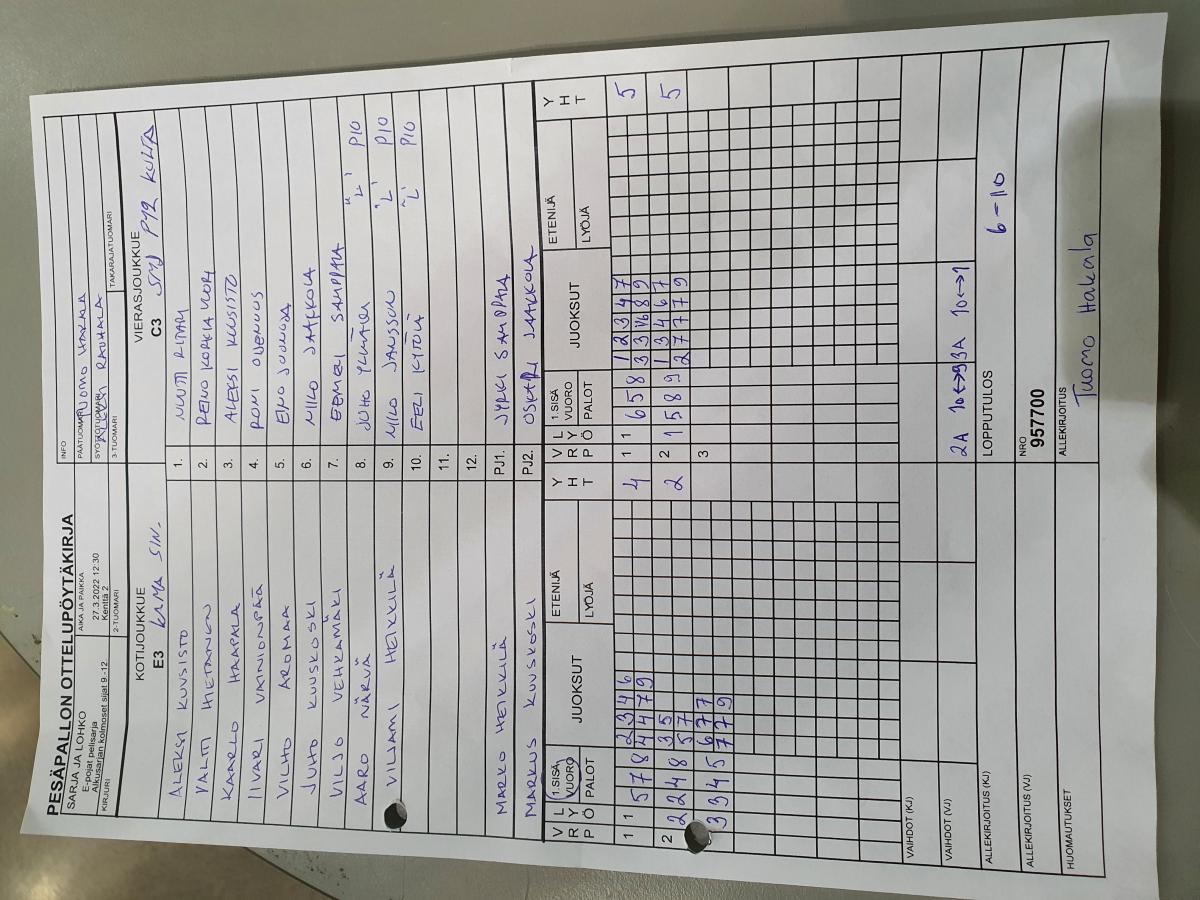 PESÄPALLON OTTELUPÖYTÄKIRJA
SARJA JA LOHKO
E-pojat pelisarja
Alkusarjan kolmoset sijat 9.-12.
AIKA JA PAIKKA
27.3.2022 12:30
Kenttä 2
INFO
PÄÄTUOMARI TUOMO HAKALA
SYÖTTÖTUOMARI RAUHALA
KIRJURI
2-TUOMARI
3-TUOMARI
TAKARAJATUOMARI
KOTIJOUKKUE
E3 KAMA SIN.
VIERASJOUKKUE
C3 SMJ P12 KULTA
ALEKSI KUUSISTO 1.
VALTTI HIETANEN 2. REINO KORKIAVUORI
KAARLO HAAPALA 3. ALEKSI KUUSISTO
IIVARI VAINIONPÄÄ 4. RONI
VILHO AROMAA 5. EINO
JUHO KUUSKOSKI 6. NIILO JAAKKOLA
VILJO VEHKAMÄKI 7. EEMELI SAMPPALA
AARO NÄRVÄ 8. JUHO "L" P10
VILJAMI HEIKKILÄ 9. NIILO JANSSON "L" P10
10. EELI KYTÖLÄ "L" P10
11.
12.
MARKO HEIKKILÄ PJ1. JYRKI SAMPPALA
MARKUS KUUSKOSKI PJ2. OSKARI JAAKKOLA
V R P L Y Ö 1.SISÄ VUORO PALOT JUOKSUT ETENIJÄ LYÖJÄ Y H T V R P L Y Ö 1.SISÄ VUORO PALOT JUOKSUT ETENIJÄ LYÖJÄ Y H T
1 1 5 7 8 2 3 4 6 4 1 1 6 5 8 1 2 3 4 7 5
4 4 7 9 3 3 8 9
2 2 2 4 8 3 5 2 2 1 5 8 9 1 3 4 6 7 5
5 7 2 7 7 7 9
3 3 4 5 6 7 7 3
7 7 9
VAIHDOT (KJ)
VAIHDOT (VJ) 2A 10↔9 3A 10↔1
ALLEKIRJOITUS (KJ)
LOPPUTULOS 6-10
ALLEKIRJOITUS (VJ)
NRO
957700
HUOMAUTUKSET
ALLEKIRJOITUS
Tuomo Hakala